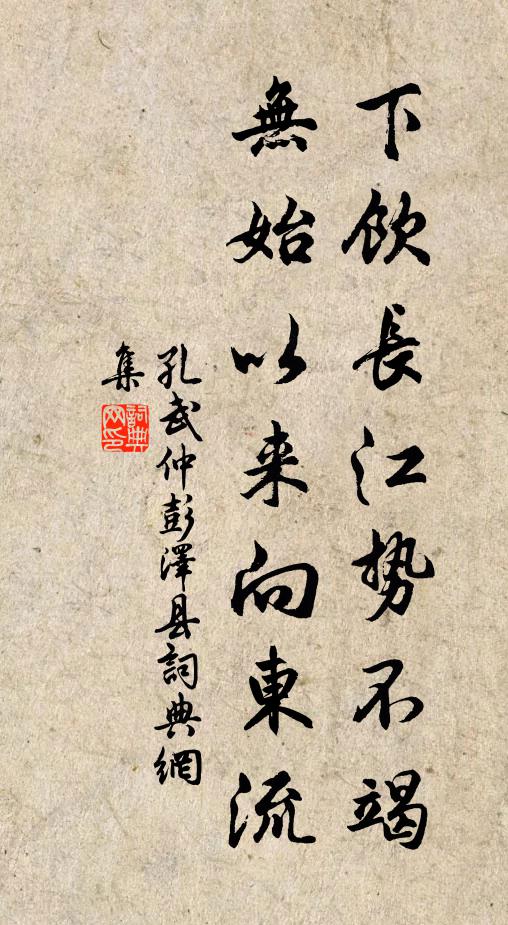 下飲長江势不竭
無始以来向東流
孔武仲彭澤县詞典網
集
詞典
网印